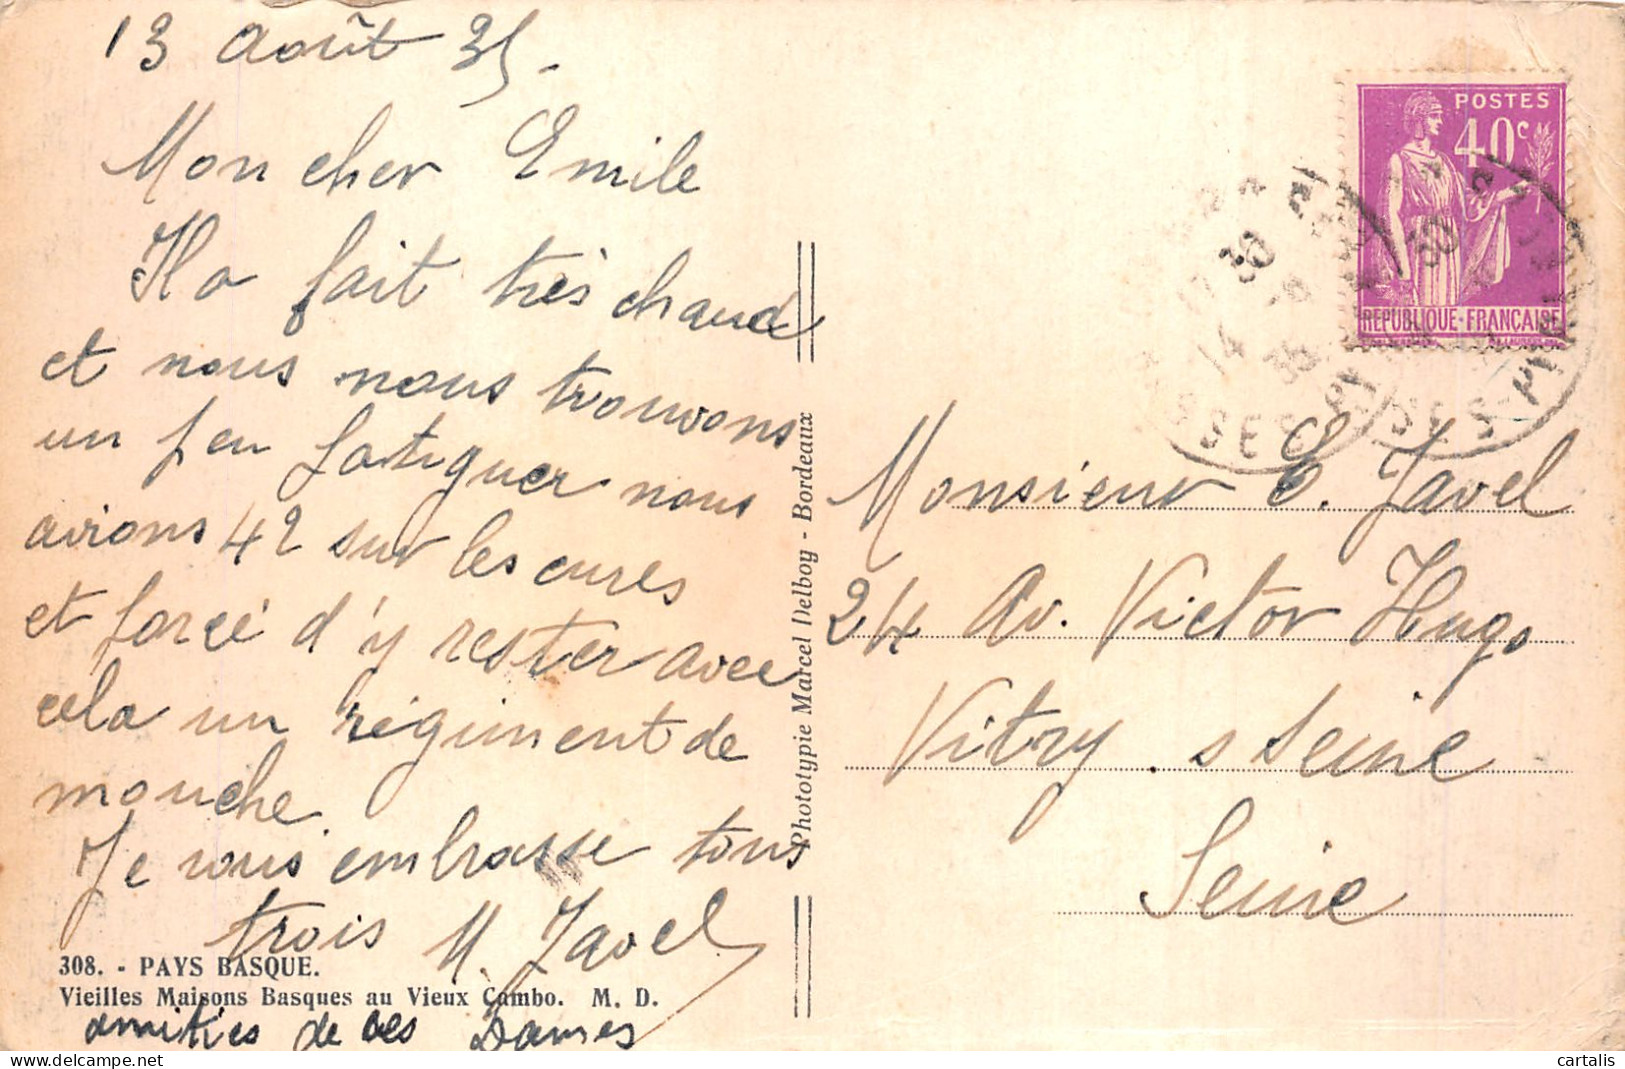 13 août 35.
Mon cher Emile
Il a fait très chaud
et nous nous trouvons
un peu fatiguer nous
avions 42 sur les cures
et forcé d'y rester avec
cela un régiment de
mouche.
Je vous embrasse tous
trois M. Javel
308. - PAYS BASQUE.
Vieilles Maisons Basques au Vieux Cambo. M. D.
amitiés de ces Dames
Phototypie Marcel Delboy - Bordeaux
POSTES
40c
REPUBLIQUE FRANÇAISE
17 30
14 8
35
Monsieur E. Javel
24 Av. Victor Hugo
Vitry s Seine
Seine
cartalis